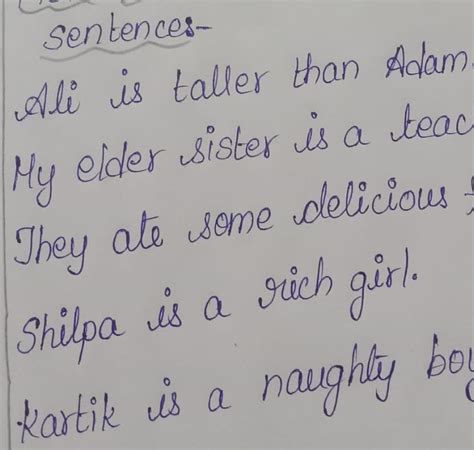 Sentences-
Ali is taller than Adam.
My elder sister is a teac
They ate some delicious
Shilpa is a rich girl.
Kartik is a naughty boy